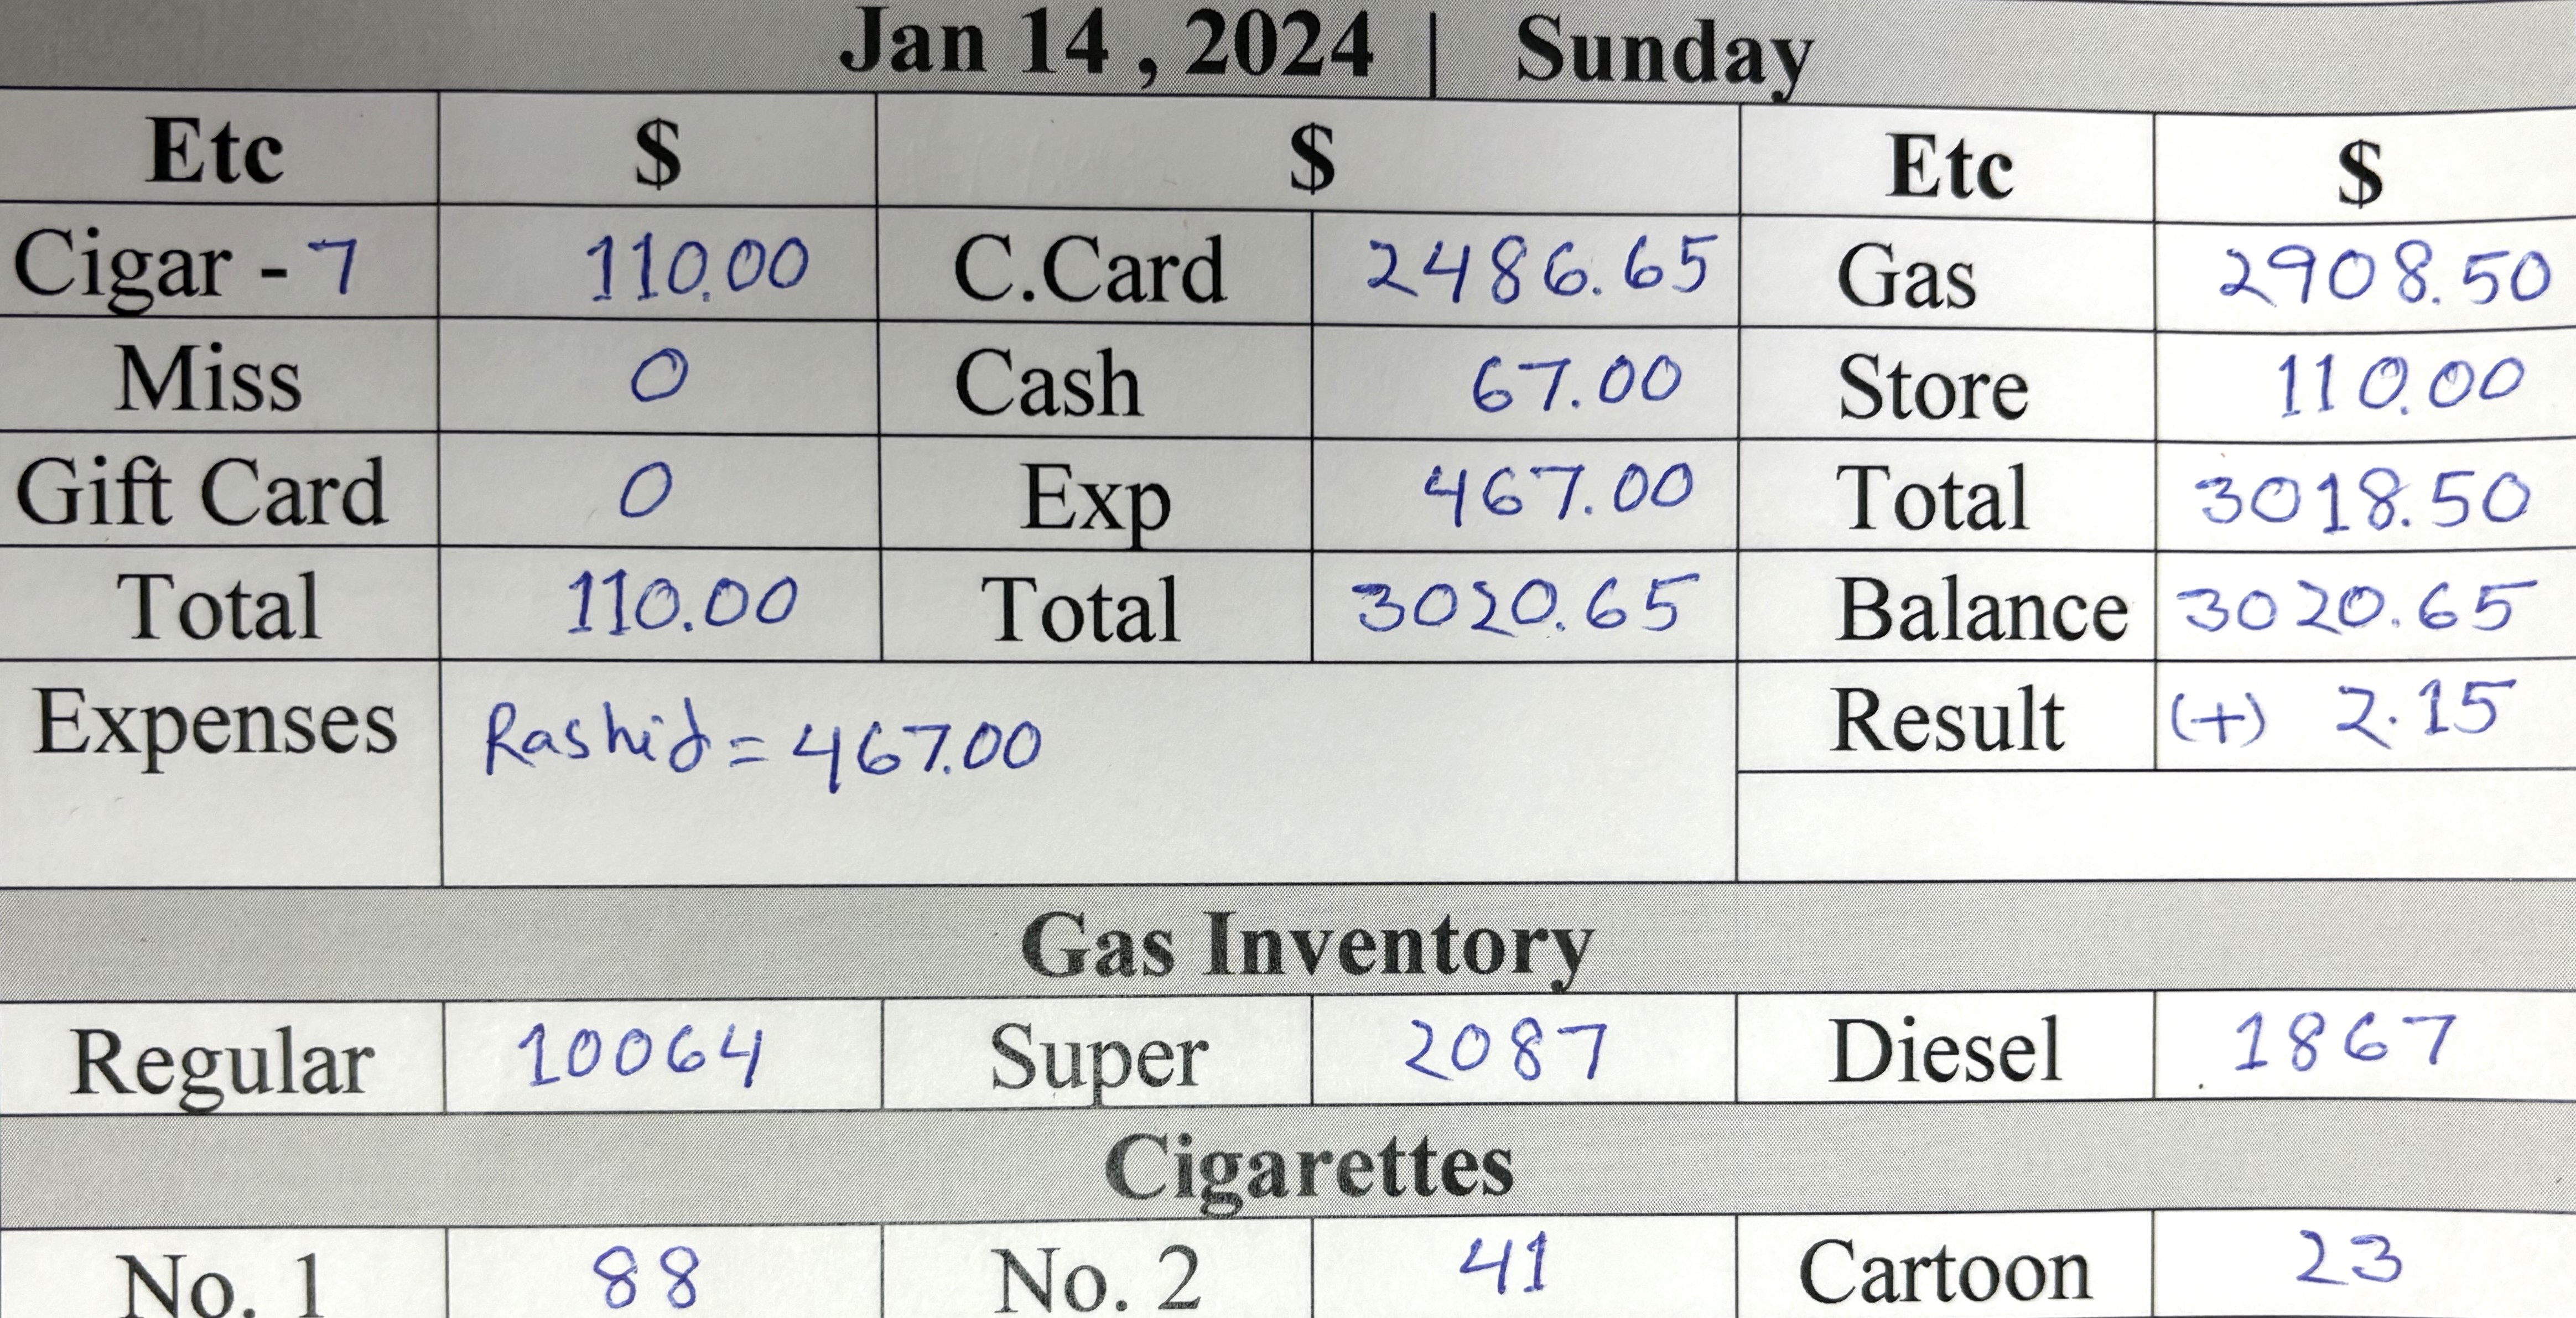 Jan 14 , 2024 | Sunday
Etc $ $ Etc $
Cigar - 7 110.00 C.Card 2486.65 Gas 2908.50
Miss 0 Cash 67.00 Store 110.00
Gift Card 0 Exp 467.00 Total 3018.50
Total 110.00 Total 3020.65 Balance 3020.65
Expenses Rashid = 467.00 Result (+) 2.15
Gas Inventory
Regular 10064 Super 2087 Diesel 1867
Cigarettes
No. 1 88 No. 2 41 Cartoon 23